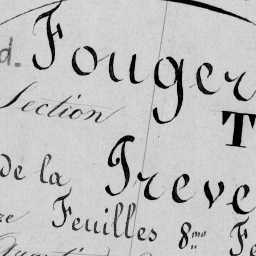 d. Fouger
Section
T
de la Treve
Feuilles 8me Fe